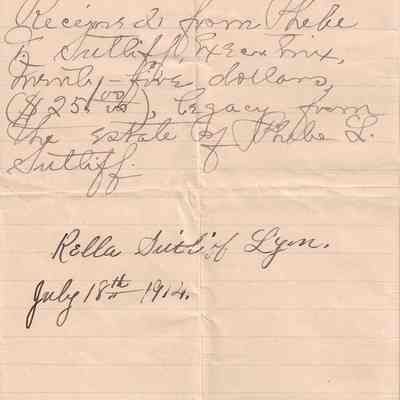 Received from Phebe
T. Sutliff, Executrix,
twenty-five dollars,
($25.00/100), legacy from
the estate of Phebe L.
Sutliff.
Rella Sutlif Lyon.
July 18th 1914.